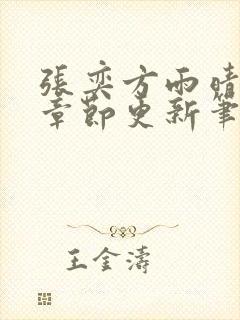 張奕方雨晴
章節更新筆
王金濤